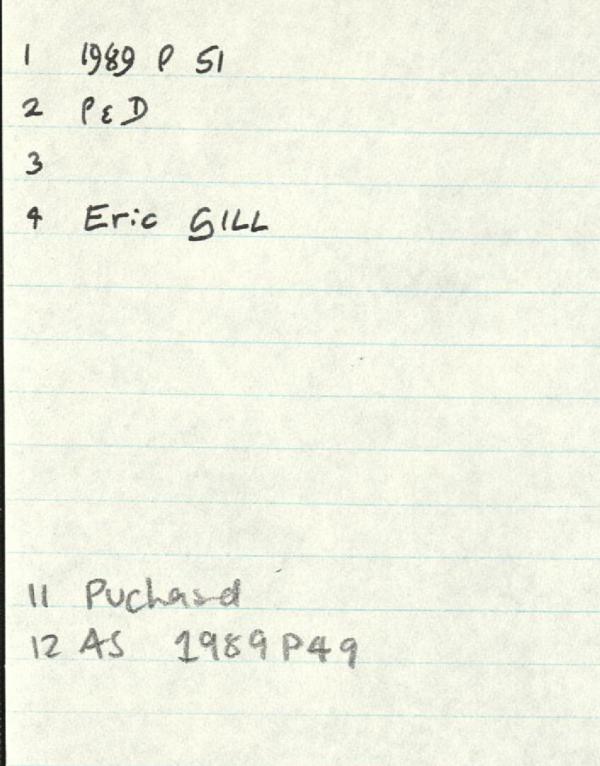 1 1989 P 51
2 P & D
3
4 Eric GILL
11 Puchasd
12 AS 1989 P49